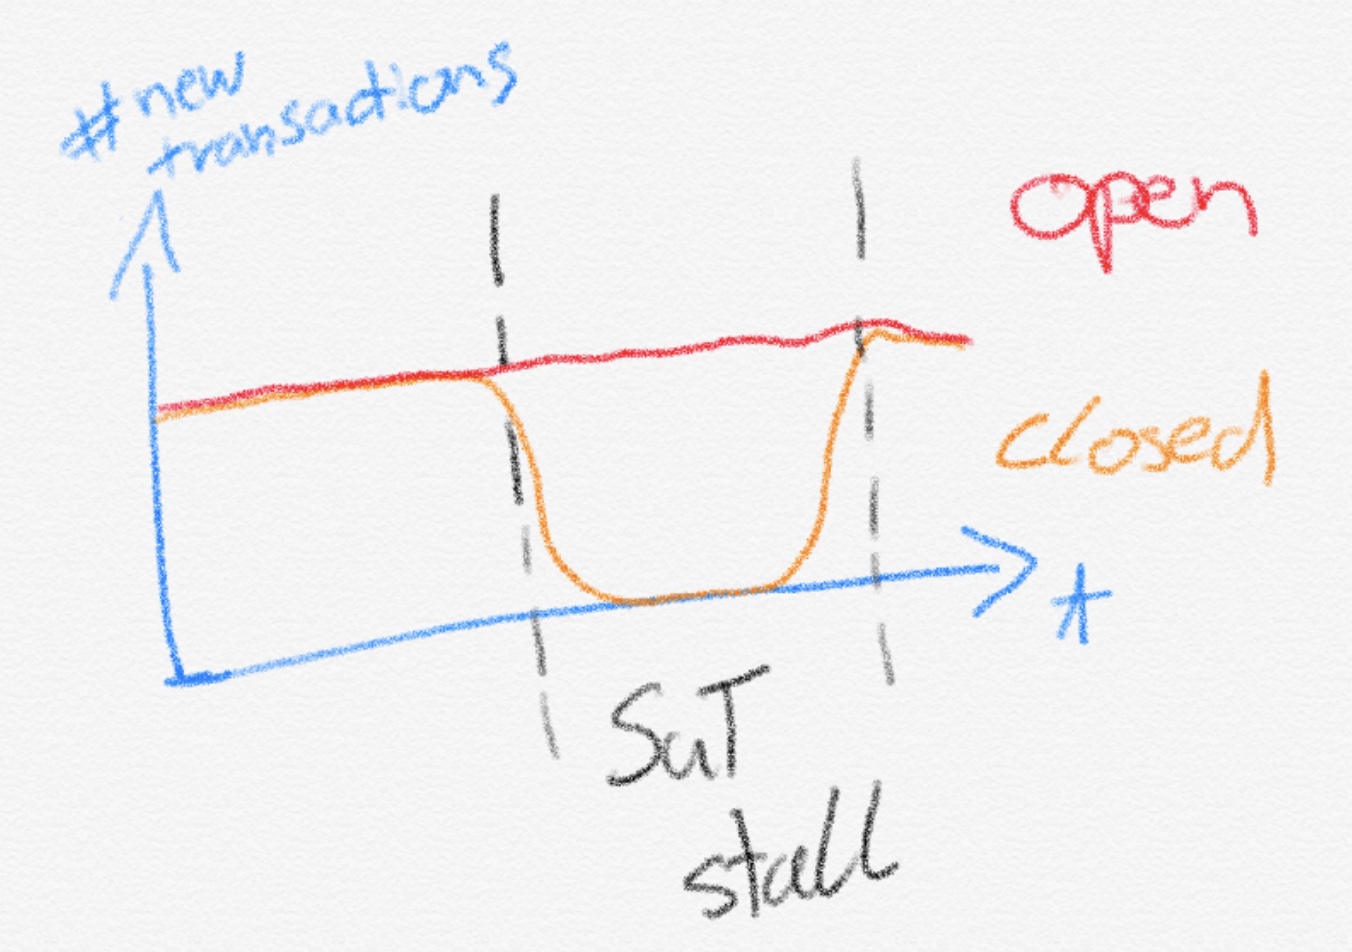 #new
transactions
open
closed
t
SuT
stall